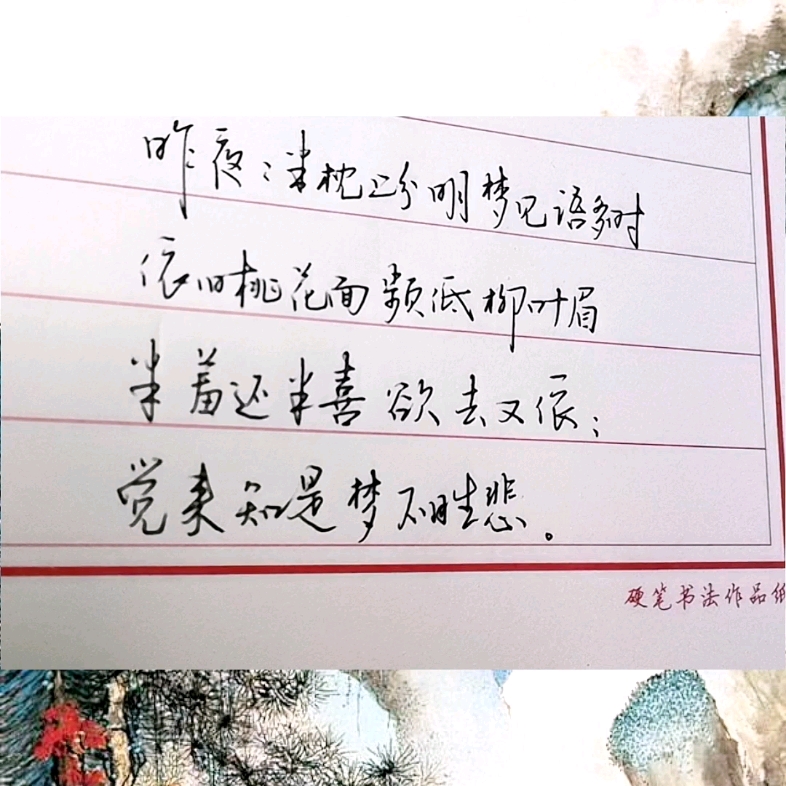 昨夜夜半枕上分明梦见语多时
依旧桃花面频低柳叶眉
半羞还半喜欲去又依依
觉来知是梦不胜悲。
硬笔书法作品纸